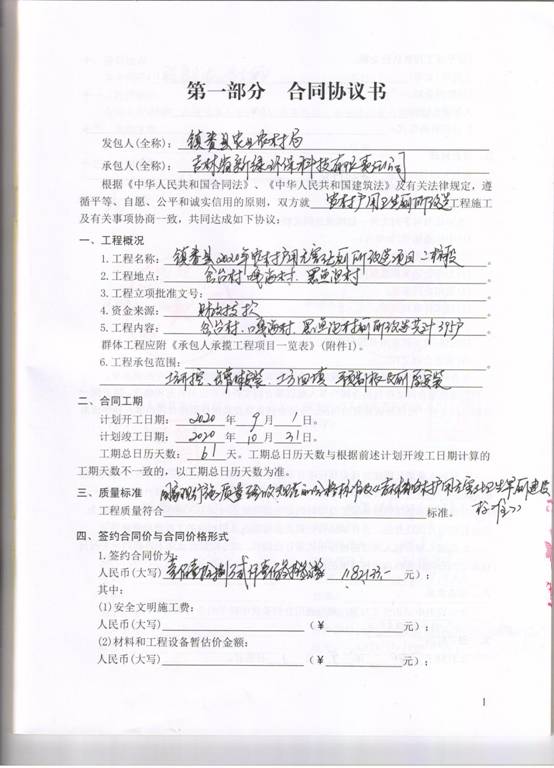 第一部分 合同协议书
发包人(全称): 镇赉县农业农村局
承包人(全称): 吉林省新绿环保科技有限责任公司
根据《中华人民共和国合同法》、《中华人民共和国建筑法》及有关法律规定,遵
循平等、自愿、公平和诚实信用的原则,双方就 农村户用卫生厕所改造 工程施工
及有关事项协商一致,共同达成如下协议:
一、工程概况
1.工程名称: 镇赉县2020年农村户用无害化厕所改造项目二标段。
2.工程地点: 村、 村、黑鱼泡村。
3.工程立项批准文号: 。
4.资金来源: 财政拨款。
5.工程内容: 村、 村、黑鱼泡村厕所改造共计395户。
群体工程应附《承包人承揽工程项目一览表》(附件1)。
6.工程承包范围:
土方开挖、 安装、土方回填、 安装。
二、合同工期
计划开工日期: 2020 年 9 月 1 日。
计划竣工日期: 2020 年 10 月 31 日。
工期总日历天数: 61 天。工期总日历天数与根据前述计划开竣工日期计算的
工期天数不一致的,以工期总日历天数为准。
三、质量标准 国家现行施工质量验收规范的合格标准及《吉林省农村户用无害化卫生旱厕建设
工程质量符合 标准。 标准》
四、签约合同价与合同价格形式
1.签约合同价为:
人民币(大写) 元);
其中:
(1)安全文明施工费:
人民币(大写) (¥ 元);
(2)材料和工程设备暂估价金额:
人民币(大写) (¥ 元);
1